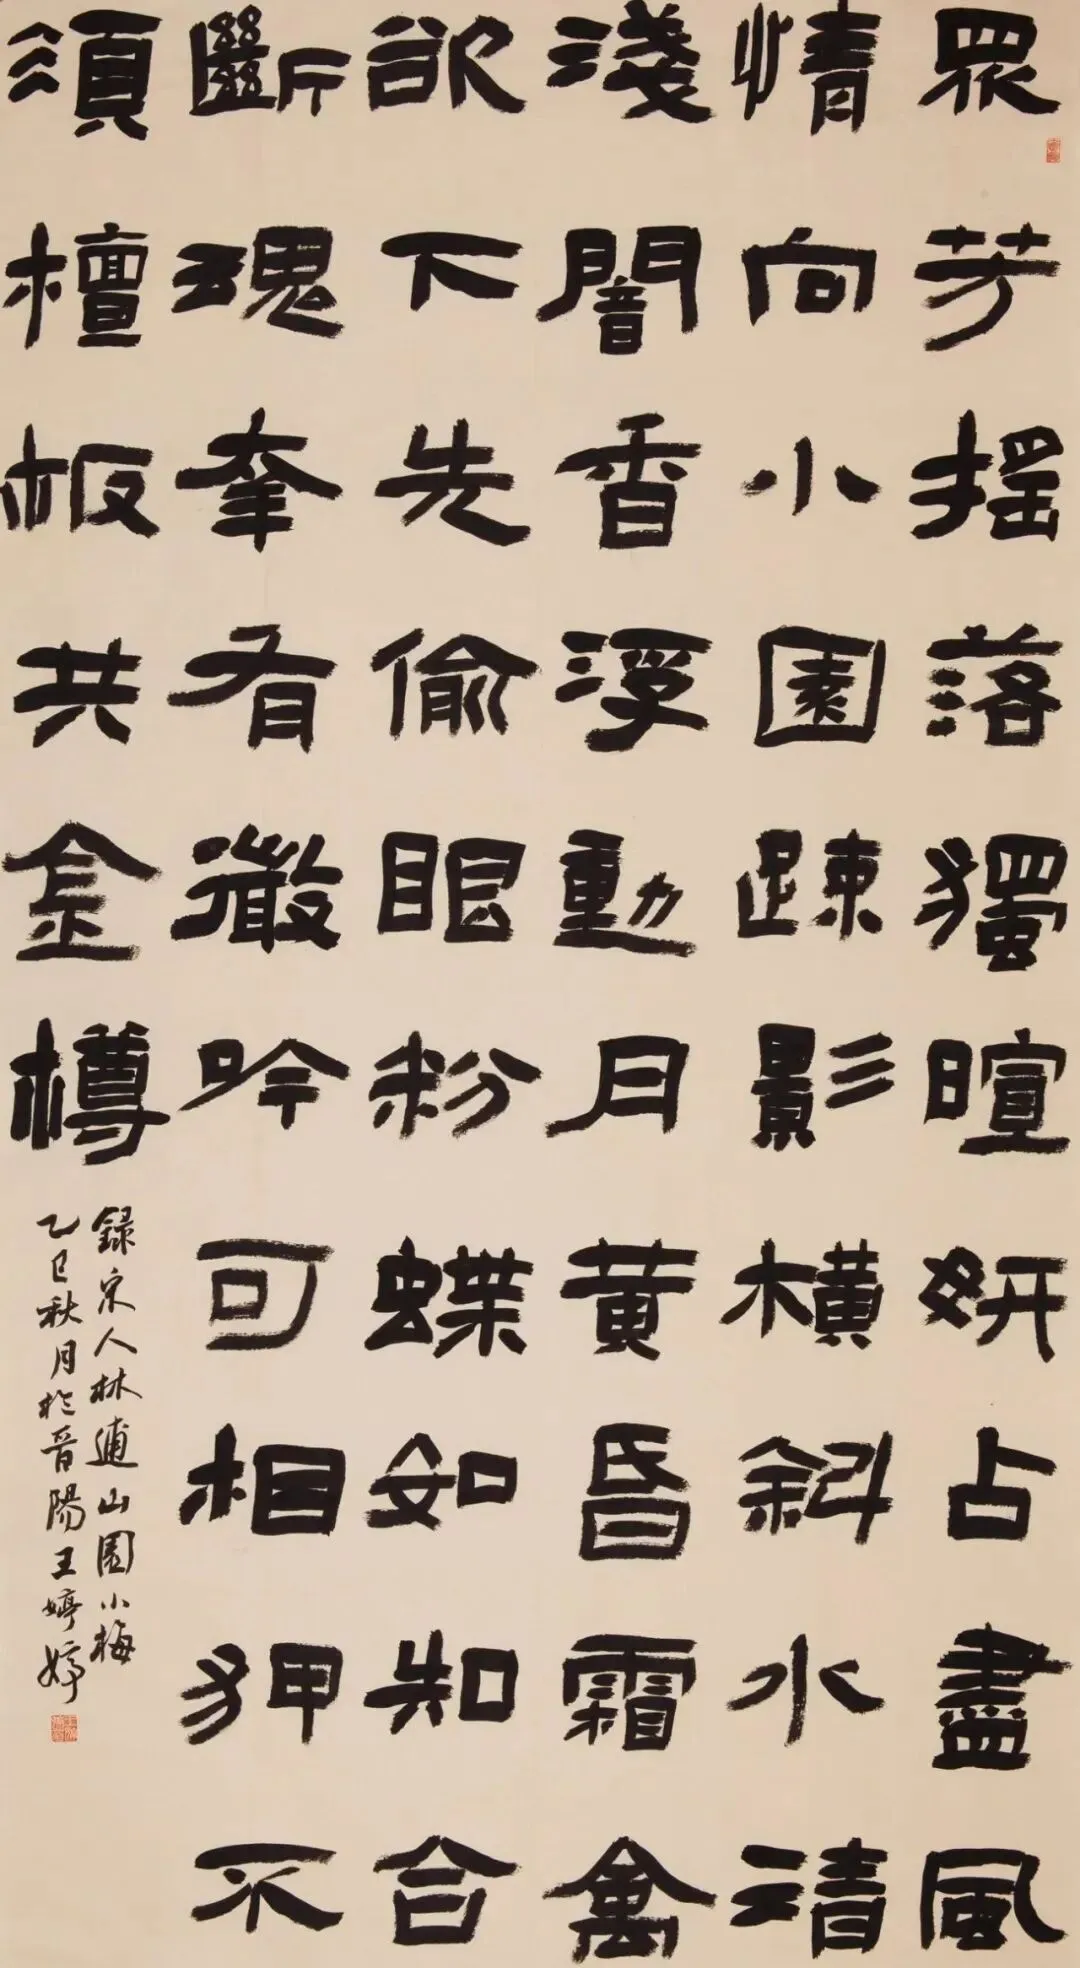 眾芳搖落獨暄妍占盡風
情向小園疎影橫斜水清
淺闇香浮動月黃昏霜禽
欲下先偷眼粉蝶如知合
斷魂幸有微吟可相狎不
須檀板共金樽
録宋人林逋山園小梅
乙巳秋月於晉陽王婷婷